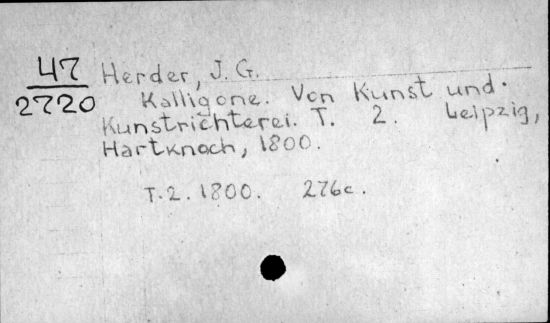 47
2720
Herder, J. G.
Kalligone. Von Kunst und
Kunstrichterei. T. 2. Leipzig,
Hartknoch, 1800.
T. 2. 1800. 276c.